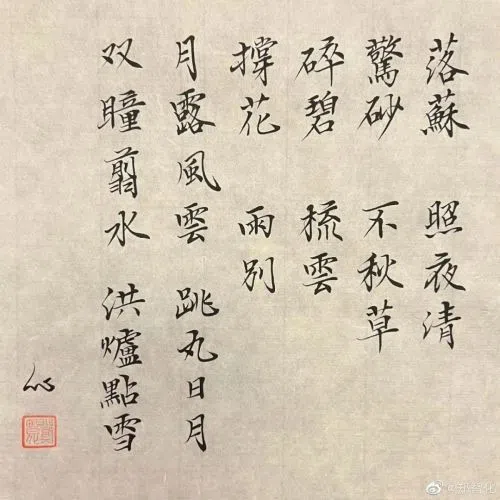 落蘇 照夜清
驚砂 不秋草
碎碧 梳雲
撐花 雨別
月露風雲 跳丸日月
双瞳翦水 洪爐點雪